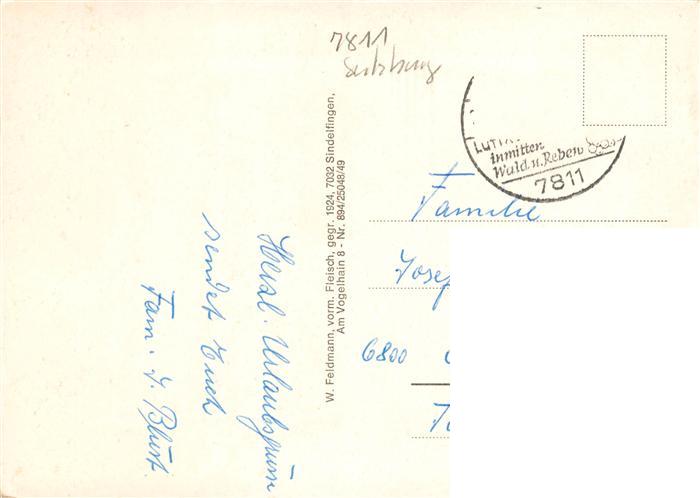 7811
Sulzburg
inmitten
Wald u. Reben
7811
W. Feldmann, vorm. Fleisch, gegr. 1924, 7032 Sindelfingen,
Am Vogelhain 8 - Nr. 894/25048/49
Herzl. Urlaubsgrüße
sendet Euch
Fam.
Familie
Josef
6800